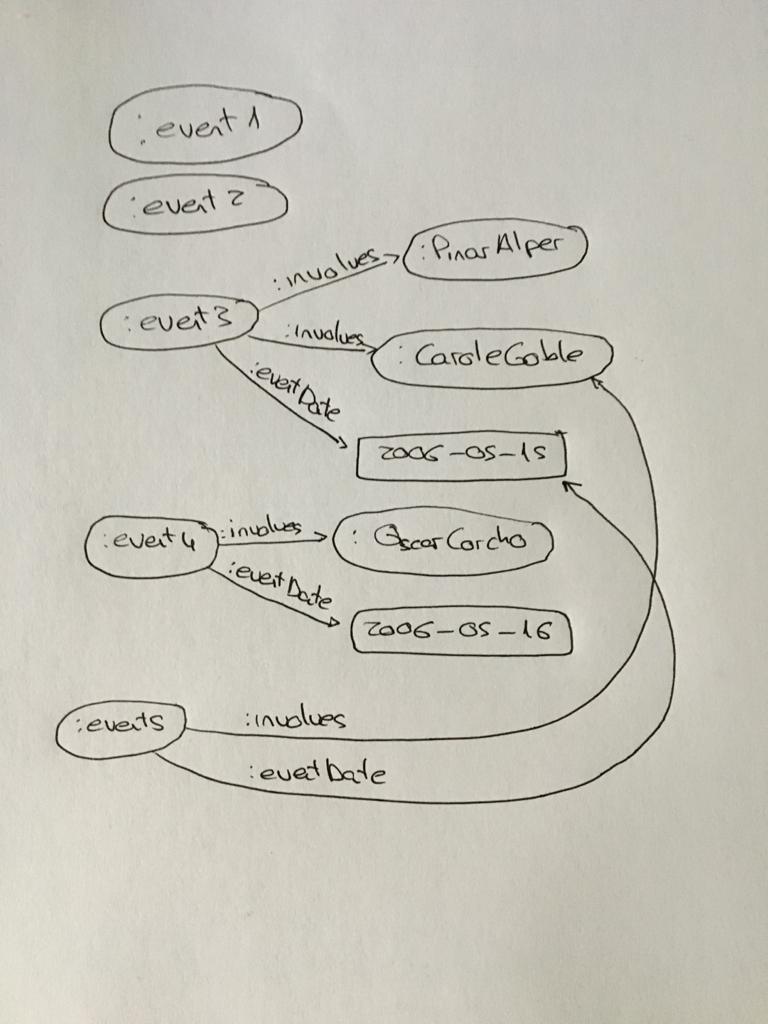 :event 1
:event 2
:involves
:PinarAlper
:event3
:involves
:CaroleGoble
:eventDate
2006-05-15
:event4
:involves
:OscarCorcho
:eventDate
2006-05-16
:event5
:involves
:eventDate